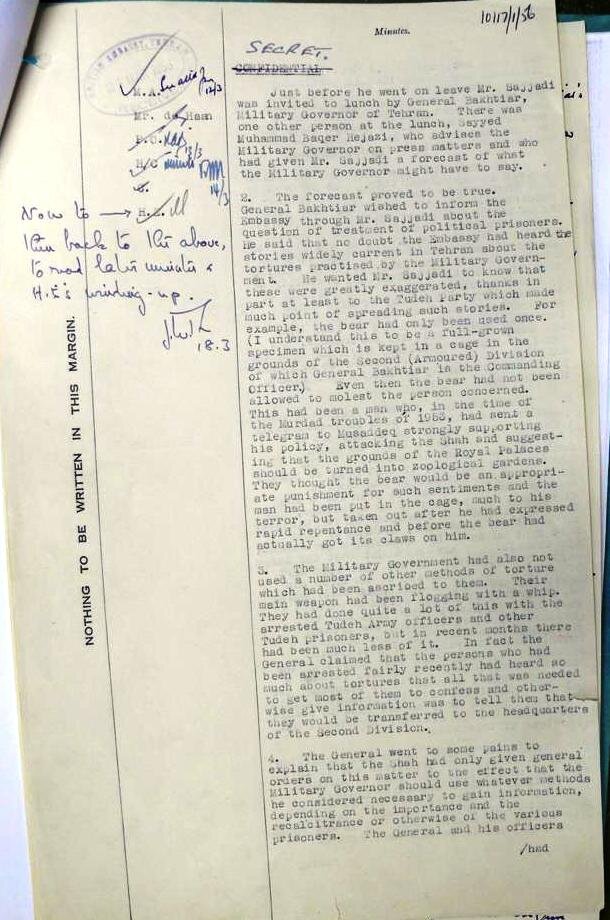 10117/1/56
Minutes.
SECRET.
CONFIDENTIAL
BRITISH EMBASSY, TEHRAN
M.A.
12/3
Mr. de Haan
P.O.
13/3
H/C
14/3
S.
H.E.
Now to →
then back to the above,
to read later minutes &
H.E's winding-up.
18.3
NOTHING TO BE WRITTEN IN THIS MARGIN.
Just before he went on leave Mr. Sajjadi
was invited to lunch by General Bakhtiar,
Military Governor of Tehran. There was
one other person at the lunch, Sayyed
Muhammad Baqer Hejazi, who advises the
Military Governor on press matters and who
had given Mr. Sajjadi a forecast of what
the Military Governor might have to say.
2. The forecast proved to be true.
General Bakhtiar wished to inform the
Embassy through Mr. Sajjadi about the
question of treatment of political prisoners.
He said that no doubt the Embassy had heard the
stories widely current in Tehran about the
tortures practised by the Military Govern-
ment. He wanted Mr. Sajjadi to know that
these were greatly exaggerated, thanks in
part at least to the Tudeh Party which made
much point of spreading such stories. For
example, the bear had only been used once.
(I understand this to be a full-grown
specimen which is kept in a cage in the
grounds of the Second (Armoured) Division
of which General Bakhtiar is the Commanding
Officer.) Even then the bear had not been
allowed to molest the person concerned.
This had been a man who, in the time of
the Murdad troubles of 1953, had sent a
telegram to Musaddeq strongly supporting
his policy, attacking the Shah and suggest-
ing that the grounds of the Royal Palaces
should be turned into zoological gardens.
They thought the bear would be an appropri-
ate punishment for such sentiments and the
man had been put in the cage, much to his
terror, but taken out after he had expressed
rapid repentance and before the bear had
actually got its claws on him.
3. The Military Government had also not
used a number of other methods of torture
which had been ascribed to them. Their
main weapon had been flogging with a whip.
They had done quite a lot of this with the
arrested Tudeh Army officers and other
Tudeh prisoners, but in recent months there
had been much less of it. In fact the
General claimed that the persons who had
been arrested fairly recently had heard so
much about tortures that all that was needed
to get most of them to confess and other-
wise give information was to tell them that
they would be transferred to the headquarters
of the Second Division.
4. The General went to some pains to
explain that the Shah had only given general
orders on this matter to the effect that the
Military Governor should use whatever methods
he considered necessary to gain information,
depending on the importance and the
recalcitrance or otherwise of the various
prisoners. The General and his officers
/had